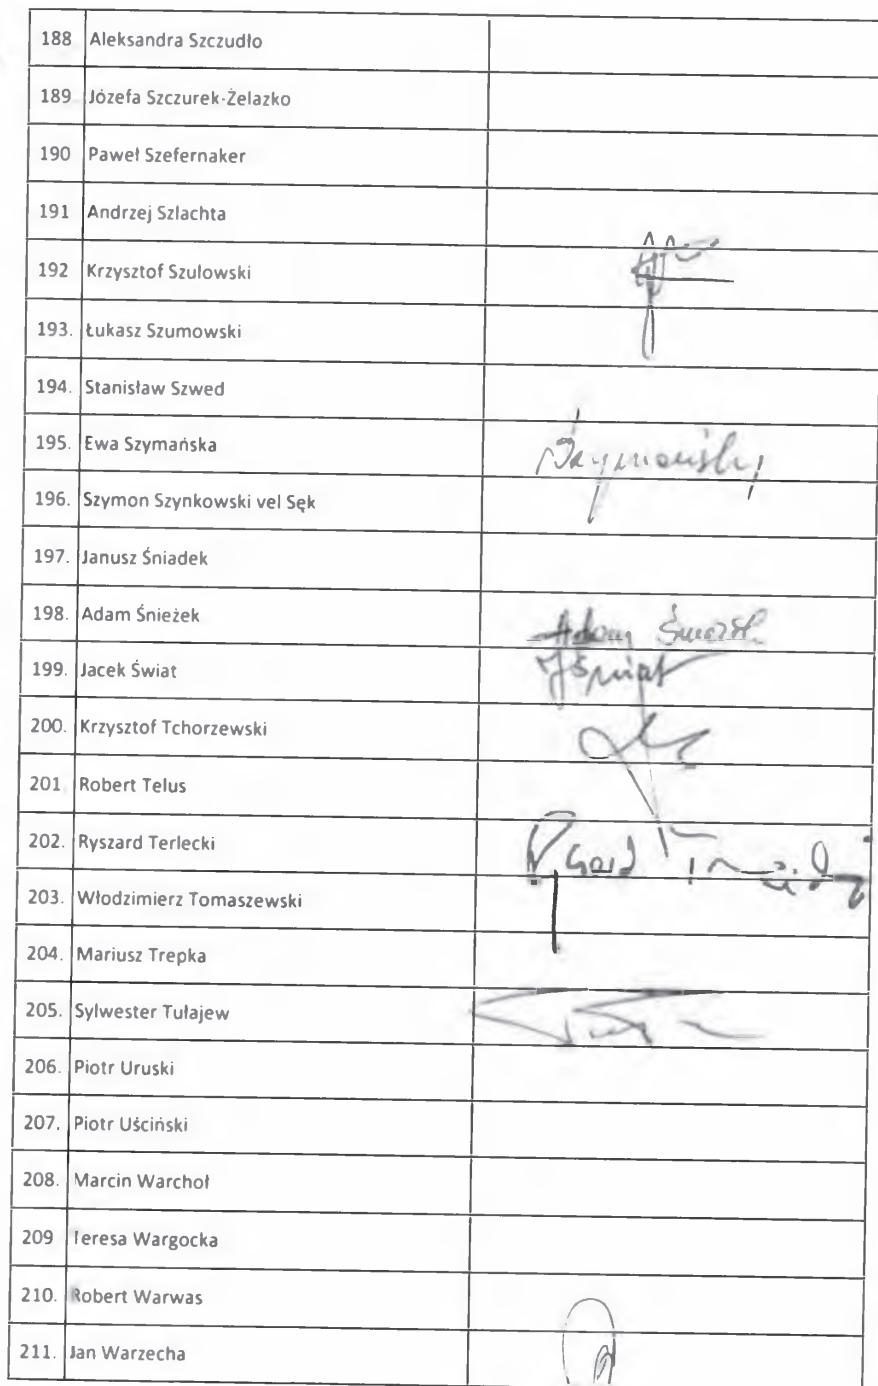 188 Aleksandra Szczudło
189 Józefa Szczurek-Żelazko
190 Paweł Szefernaker
191 Andrzej Szlachta
192 Krzysztof Szulowski
193. Łukasz Szumowski
194. Stanisław Szwed
195. Ewa Szymańska
196. Szymon Szynkowski vel Sęk
197. Janusz Śniadek
198. Adam Śnieżek Adam
199. Jacek Świat JŚwiat
200. Krzysztof Tchorzewski
201 Robert Telus
202. Ryszard Terlecki
203. Włodzimierz Tomaszewski
204. Mariusz Trepka
205. Sylwester Tułajew
206. Piotr Uruski
207. Piotr Uściński
208. Marcin Warchoł
209 Teresa Wargocka
210. Robert Warwas
211. Jan Warzecha